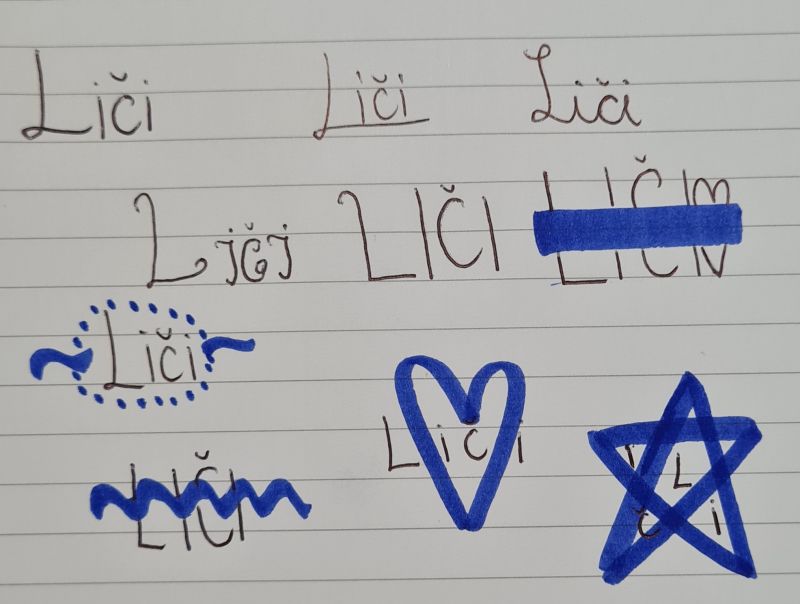 Liči Liči Liči
Ljčj LIČI
Liči
LIČI Liči
L
i
č i